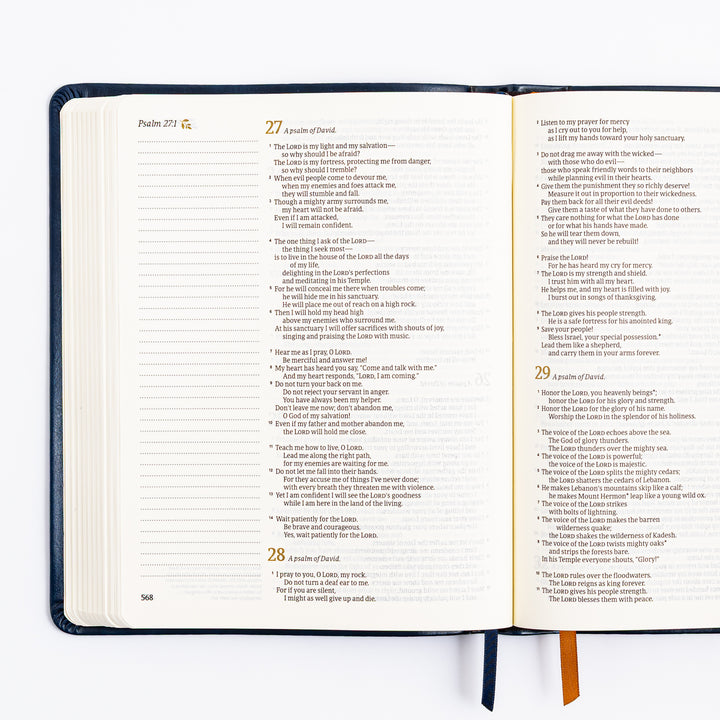 Psalm 27:1
27 A psalm of David.
1 The LORD is my light and my salvation—
so why should I be afraid?
The LORD is my fortress, protecting me from danger,
so why should I tremble?
2 When evil people come to devour me,
when my enemies and foes attack me,
they will stumble and fall.
3 Though a mighty army surrounds me,
my heart will not be afraid.
Even if I am attacked,
I will remain confident.
4 The one thing I ask of the LORD—
the thing I seek most—
is to live in the house of the LORD all the days
of my life,
delighting in the LORD's perfections
and meditating in his Temple.
5 For he will conceal me there when troubles come;
he will hide me in his sanctuary.
He will place me out of reach on a high rock.
6 Then I will hold my head high
above my enemies who surround me.
At his sanctuary I will offer sacrifices with shouts of joy,
singing and praising the LORD with music.
7 Hear me as I pray, O LORD.
Be merciful and answer me!
8 My heart has heard you say, "Come and talk with me."
And my heart responds, "LORD, I am coming."
9 Do not turn your back on me.
Do not reject your servant in anger.
You have always been my helper.
Don't leave me now; don't abandon me,
O God of my salvation!
10 Even if my father and mother abandon me,
the LORD will hold me close.
11 Teach me how to live, O LORD.
Lead me along the right path,
for my enemies are waiting for me.
12 Do not let me fall into their hands.
For they accuse me of things I've never done;
with every breath they threaten me with violence.
13 Yet I am confident I will see the LORD's goodness
while I am here in the land of the living.
14 Wait patiently for the LORD.
Be brave and courageous.
Yes, wait patiently for the LORD.
28 A psalm of David.
1 I pray to you, O LORD, my rock.
Do not turn a deaf ear to me.
For if you are silent,
I might as well give up and die.
568
2 Listen to my prayer for mercy
as I cry out to you for help,
as I lift my hands toward your holy sanctuary.
3 Do not drag me away with the wicked—
with those who do evil—
those who speak friendly words to their neighbors
while planning evil in their hearts.
4 Give them the punishment they so richly deserve!
Measure it out in proportion to their wickedness.
Pay them back for all their evil deeds!
Give them a taste of what they have done to others.
5 They care nothing for what the LORD has done
or for what his hands have made.
So he will tear them down,
and they will never be rebuilt!
6 Praise the LORD!
For he has heard my cry for mercy.
7 The LORD is my strength and shield.
I trust him with all my heart.
He helps me, and my heart is filled with joy.
I burst out in songs of thanksgiving.
8 The LORD gives his people strength.
He is a safe fortress for his anointed king.
9 Save your people!
Bless Israel, your special possession.*
Lead them like a shepherd,
and carry them in your arms forever.
29 A psalm of David.
1 Honor the LORD, you heavenly beings*;
honor the LORD for his glory and strength.
2 Honor the LORD for the glory of his name.
Worship the LORD in the splendor of his holiness.
3 The voice of the LORD echoes above the sea.
The God of glory thunders.
The LORD thunders over the mighty sea.
4 The voice of the LORD is powerful;
the voice of the LORD is majestic.
5 The voice of the LORD splits the mighty cedars;
the LORD shatters the cedars of Lebanon.
6 He makes Lebanon's mountains skip like a calf;
he makes Mount Hermon* leap like a young wild ox.
7 The voice of the LORD strikes
with bolts of lightning.
8 The voice of the LORD makes the barren
wilderness quake;
the LORD shakes the wilderness of Kadesh.
9 The voice of the LORD twists mighty oaks*
and strips the forests bare.
In his Temple everyone shouts, "Glory!"
10 The LORD rules over the floodwaters.
The LORD reigns as king forever.
11 The LORD gives his people strength.
The LORD blesses them with peace.